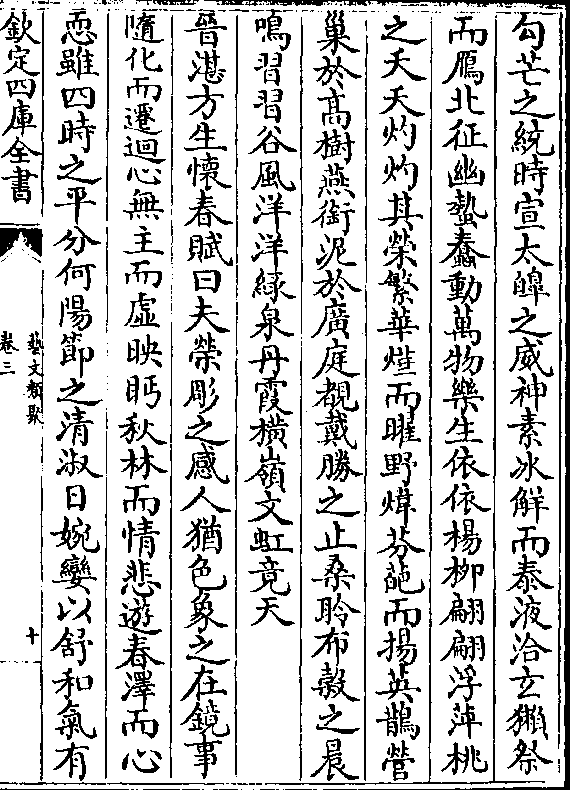 勾芒之統時宣太皥之威神素冰解而泰液洽玄獺祭
而鴈北征幽蟄蠢動萬物樂生依依楊柳翩翩浮萍桃
之夭夭灼灼其榮繁華爗而曜野煒芬葩而揚英鵲營
巢於高樹燕銜泥於廣庭覩戴勝之止桑聆布穀之晨
鳴習習谷風洋洋綠泉丹霞横嶺文虹竟天
晉湛方生懷春賦曰夫榮彫之感人猶色象之在鏡事
隨化而遷迴心無主而虛映眄秋林而情悲遊春澤而心
恧雖四時之平分何陽節之清淑日婉孌以舒和氣有
欽定四庫全書
藝文類聚
卷三
十